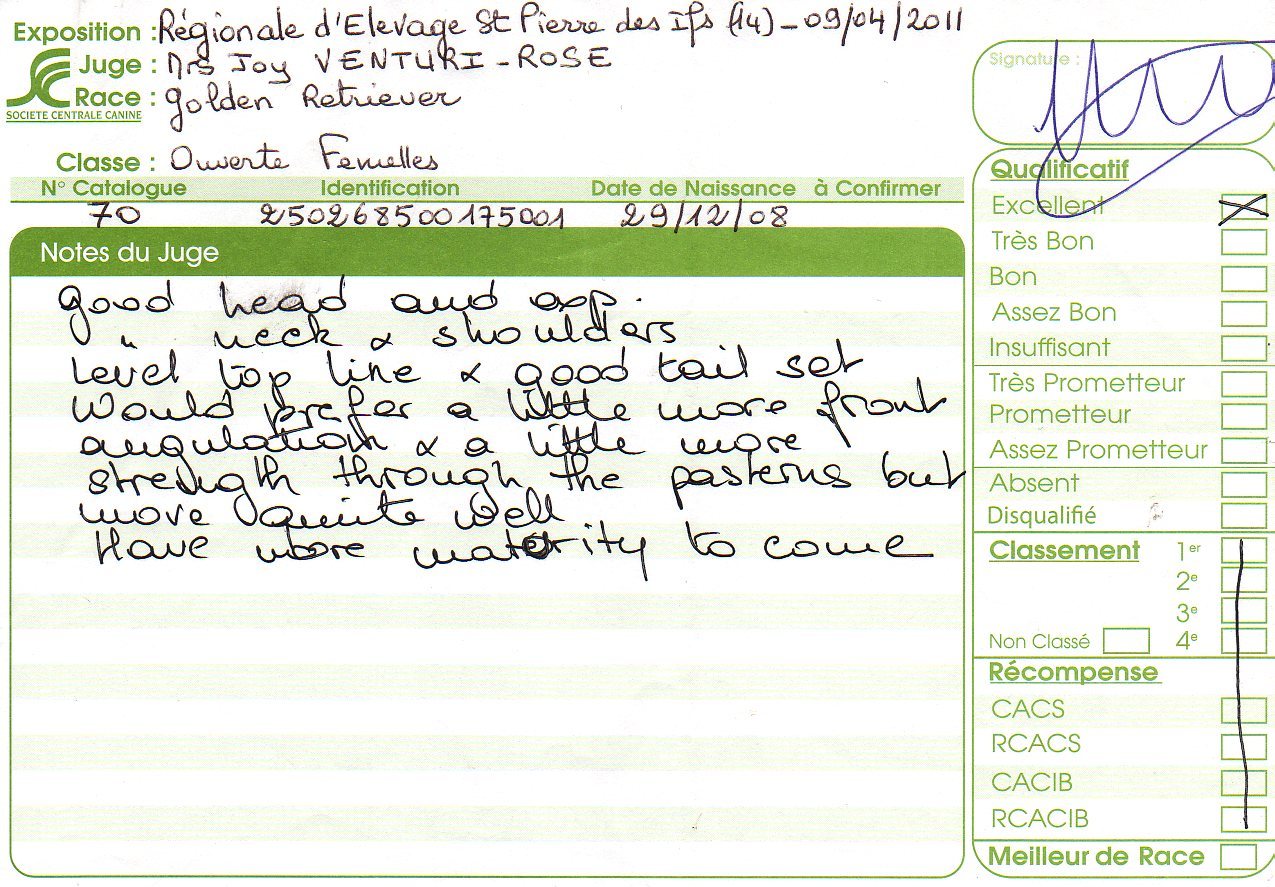 Exposition : Régionale d'Elevage St Pierre des Ifs (14) - 09/04/2011
Juge : Mrs Joy VENTURI - ROSE
Race : Golden Retriever
SOCIETE CENTRALE CANINE
Classe : Ouverte Femelles
N° Catalogue Identification Date de Naissance à Confirmer
70 250268500175001 29/12/08
Notes du Juge
good head and exp.
" neck & shoulders
Level top line & good tail set
Would prefer a little more front
angulation & a little more
strength through the pasterns but
move quite well
Have more maturity to come
Signature :
Qualificatif
Excellent
Très Bon
Bon
Assez Bon
Insuffisant
Très Prometteur
Prometteur
Assez Prometteur
Absent
Disqualifié
Classement 1er
2e
3e
Non Classé 4e
Récompense
CACS
RCACS
CACIB
RCACIB
Meilleur de Race